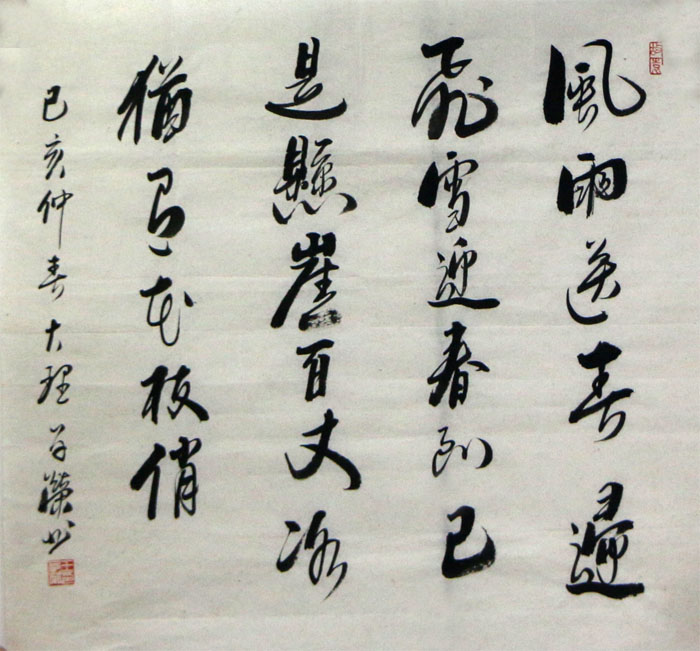 風雨送春歸
飛雪迎春到已
是懸崖百丈冰
猶有花枝俏
己亥仲春大理榮书